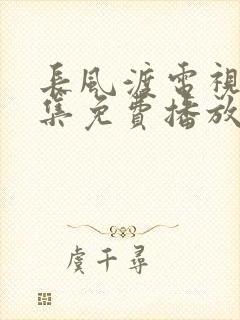 長風渡電視
集免費播放
虞千尋